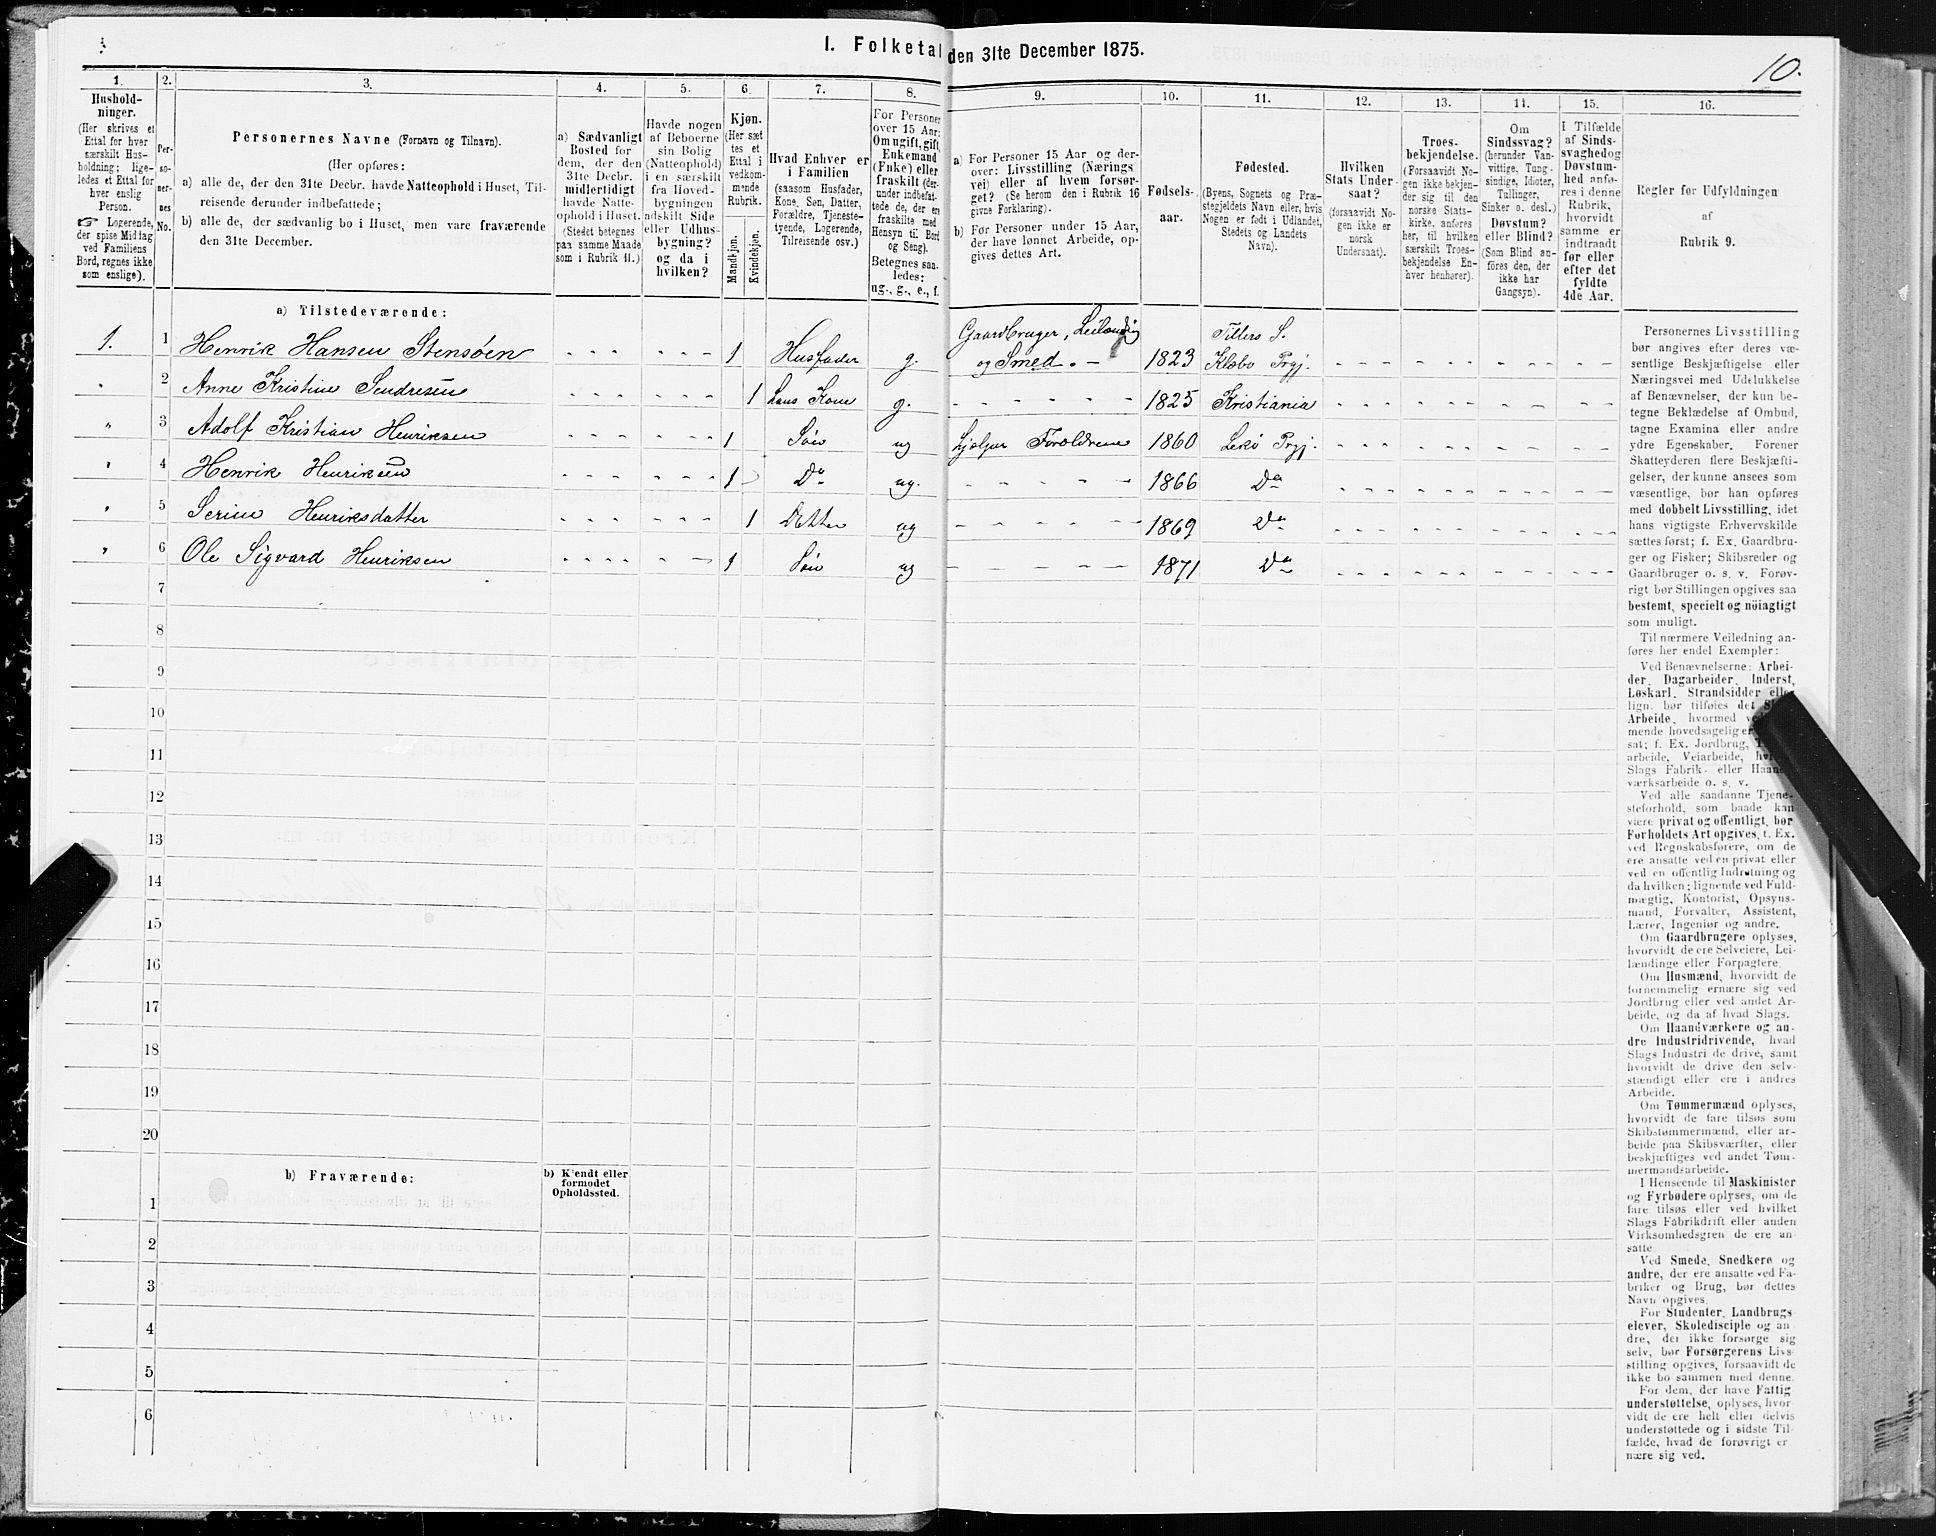 I. Folketal den 31te December 1875.
10.
1.
2.
3.
4.
5.
6.
7.
8.
9.
10.
11.
12.
13.
14.
15.
16.
Hushold-
ninger.
(Her skrives et
Ettal for hver
særskilt Hus-
holdning; lige-
ledes et Ettal for
hver enslig
Person.
☞ Logerende,
der spise Middag
ved Familiens
Bord, regnes ikke
som enslige).
Per-
so-
ner-
nes
No.
Personernes Navne (Fornavn og Tilnavn).
(Her opføres:
a) alle de, der den 31te Decbr. havde Natteophold i Huset, Til-
reisende derunder indbefattede;
b) alle de, der sædvanlig bo i Huset, men vare fraværende
den 31te December.
a) Sædvanligt
Bosted for
dem, der den
31te Decbr.
midlertidigt
havde Natte-
ophold i Huset.
(Stedet betegnes
paa samme Maade
som i Rubrik 11.)
Havde nogen
af Beboerne
sin Bolig
(Natteophold)
i en særskilt
fra Hoved-
bygningen
adskilt Side
eller Udhus-
bygning?
og da i
hvilken?
Kjøn.
(Her sæt
tes et
Ettal i
vedkom-
mende
Rubrik.
Mandkjøn.
Kvindekjøn.
Hvad Enhver er
i Familien
(saasom Husfader,
Kone, Søn, Datter,
Forældre, Tjeneste-
tyende, Logerende,
Tilreisende osv.)
For Personer
over 15 Aar:
Om ugift, gift,
Enkemand
(Enke) eller
fraskilt (der-
under indbefat-
tede de, der ere
fraskilte med
Hensyn til Bord
og Seng).
Betegnes saa-
ledes:
ug., g., e., f.
a) For Personer 15 Aar og der-
over: Livsstilling (Nærings
vei) eller af hvem forsør-
get? (Se herom den i Rubrik 16
givne Forklaring).
b) For Personer under 15 Aar,
der have lønnet Arbeide, op-
gives dettes Art.
Fødsels-
aar.
Fødested.
(Byens, Sognets og Præ-
stegjeldets Navn eller, hvis
Nogen er født i Udlandet,
Stedets og Landets
Navn).
Hvilken
Stats Under-
saat?
(forsaavidt No-
gen ikke er
norsk
Undersaat).
Troes-
bekjendelse.
(Forsaavidt No-
gen ikke bekjen-
der sig til den
norske Stats-
kirke, anføres
her, til hvilken
særskilt Troes-
bekjendelse En-
hver henhører).
Om
Sindssvag?
(herunder Van-
vittige, Tung-
sindige, Idioter,
Tullinger,
Sinker o. desl.)
Døvstum?
eller Blind?
(Som Blind an-
føres den, der
ikke har
Gangsyn).
I Tilfælde
af Sinds-
svaghed og
Døvstum-
hed anfø-
res i denne
Rubrik,
hvorvidt
samme er
indtraadt
før eller
efter det
fyldte
4de Aar.
Regler for Udfyldningen
af
Rubrik 9.
a) Tilstedeværende:
1. 1 Henrik Hansen Stensøen 1 Husfader g. Gaardbruger, Leilænding og Smed. 1823 Tillers S. Klæbo Prgj.
" 2 Anne Kristine Sendresen 1 hans Kone g. 1825 Kristiania
" 3 Adolf Kristian Henriksen 1 Søn ug hjelper Forældrene 1860 Lekø Prgj.
" 4 Henrik Henriksen 1 Do ug. 1866 Do
" 5 Serine Henriksdatter 1 Datter ug 1869 Do
" 6 Ole Sigvard Henriksen 1 Søn ug 1871 Do
7
8
9
10
11
12
13
14
15
16
17
18
19
20
b) Fraværende:
b) Kjendt eller
formodet
Opholdssted.
1
2
3
4
5
6
Personernes Livsstilling
bør angives efter deres væ-
sentlige Beskjæftigelse eller
Næringsvei med Udelukkelse
af Benævnelser, der kun be-
tegne Beklædelse af Ombud,
tagne Examina eller andre
ydre Egenskaber. Forener
Skatteyderen flere Beskjæfti-
gelser, der kunne ansees som
væsentlige, bør han opføres
med dobbelt Livsstilling, idet
hans vigtigste Erhvervskilde
sættes først; f. Ex. Gaardbru-
ger og Fisker; Skibsreder og
Gaardbruger o. s. v. Forøv-
rigt bør Stillingen opgives saa
bestemt, specielt og nøiagtigt
som muligt.
Til nærmere Veiledning an-
føres her endel Exempler:
Ved Benævnelserne: Arbei-
der, Dagarbeider, Inderst,
Løskarl, Strandsidder eller
lign. bør tilføies det
Arbeide, hvormed
mende hovedsagelig er
sat; f. Ex. Jordbrug,
arbeide, Veiarbeide,
Slags Fabrik- eller Haand-
værksarbeide o. s. v.
Ved alle saadanne Tjene-
steforhold, som baade kan
være privat og offentligt, bør
Forholdets Art opgives, t. Ex.
ved Regnskabsførere, om de
ere ansatte ved en privat eller
ved en offentlig Indretning og
da hvilken; lignende ved Fuld-
mægtig, Kontorist, Opsyns-
mand, Forvalter, Assistent,
Lærer, Ingeniør og andre.
Om Gaardbrugere oplyses,
hvorvidt de ere Selveiere, Lei-
lændinge eller Forpagtere.
Om Husmænd, hvorvidt de
fornemmelig ernære sig ved
Jordbrug eller ved andet Ar-
beide, og da af hvad Slags.
Om Haandværkere og an-
dre Industridrivende, hvad
Slags Industri de drive, samt
hvorvidt de drive den selv-
stændigt eller ere i andres
Arbeide.
Om Tømmermænd oplyses,
hvorvidt de fare tilsøs som
Skibstømmermænd, eller ar-
beide paa Skibsværfter, eller
beskjæftiges ved andet Tøm-
mermandsarbeide.
I Henseende til Maskinister
og Fyrbødere oplyses, om de
fare tilsøs eller ved hvilket
Slags Fabrikdrift eller anden
Virksomhedsgren de ere an-
satte
Ved Smede, Snedkere og
andre, der ere ansatte ved Fa-
briker og Brug, bør dettes
Navn opgives.
For Studenter, Landbrugs-
elever, Skoledisciple og an-
dre, der ikke forsørge sig
selv, bør Forsørgerens Livs-
stilling opgives, forsaavidt de
ikke bo sammen med denne.
For dem, der have Fattig-
understøttelse, oplyses, hvor-
vidt de ere helt eller delvis
understøttede og i sidste Til-
fælde, hvad de forøvrigt er
nære sig ved.